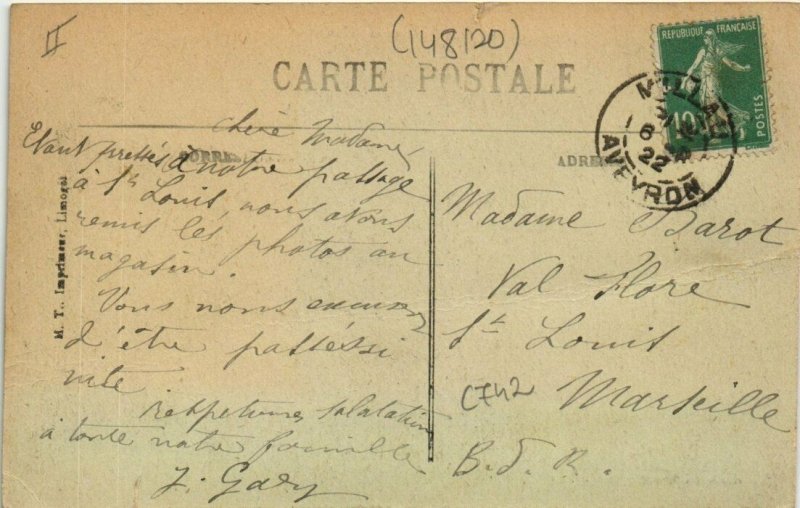 II
(148120)
CARTE POSTALE
REPUBLIQUE FRANÇAISE
10
POSTES
MILLAU
6
22
AVEYRON
ADRE
Chère Madame,
Etant pressés à notre passage
à St Louis, nous avons
remis les photos au
magasin.
Vous nous excusez
d'être passés si
vite
salutations
à toute notre famille
J. Gary
M. T., Imprimeur, Limoges
Madame Barot
Val Flore
St Louis
C742
Marseille
B. d. R.